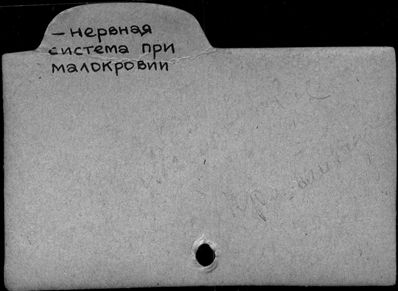 – нервная
система при
малокровии